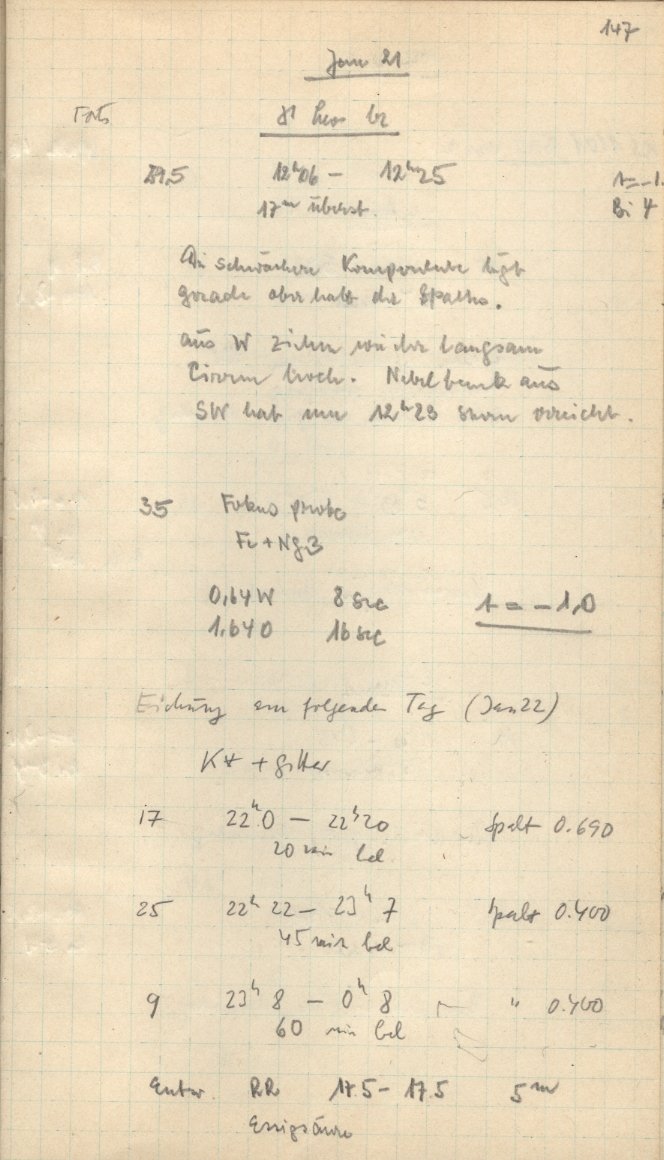 147
Jan 21
Forts
br
29,5 12ʰ06 – 12ʰ25 t = –1.
17ᵐ überst. Bi 4
Die schwächere Komponente liegt
gerade oberhalb des Spaltes.
Aus W ziehen wieder langsam
Cirren hoch. Nebelbank aus
SW hat um 12ʰ23 Stern erreicht.
35 Fokusprobe
Fe +
0,64W 8 sec t = –1,0
1,640 16 sec
Eichung am folgenden Tag (Jan 22)
+ Gitter
17 22ʰ0 – 22ʰ20 Spalt 0.690
20 min bel
25 22ʰ 22 – 23ʰ 7 Spalt 0.400
45 min bel
9 23ʰ 8 – 0ʰ 8 " 0.400
60 min bel
Entw. RR 17.5 – 17.5 5ᵐ
Essigsäure